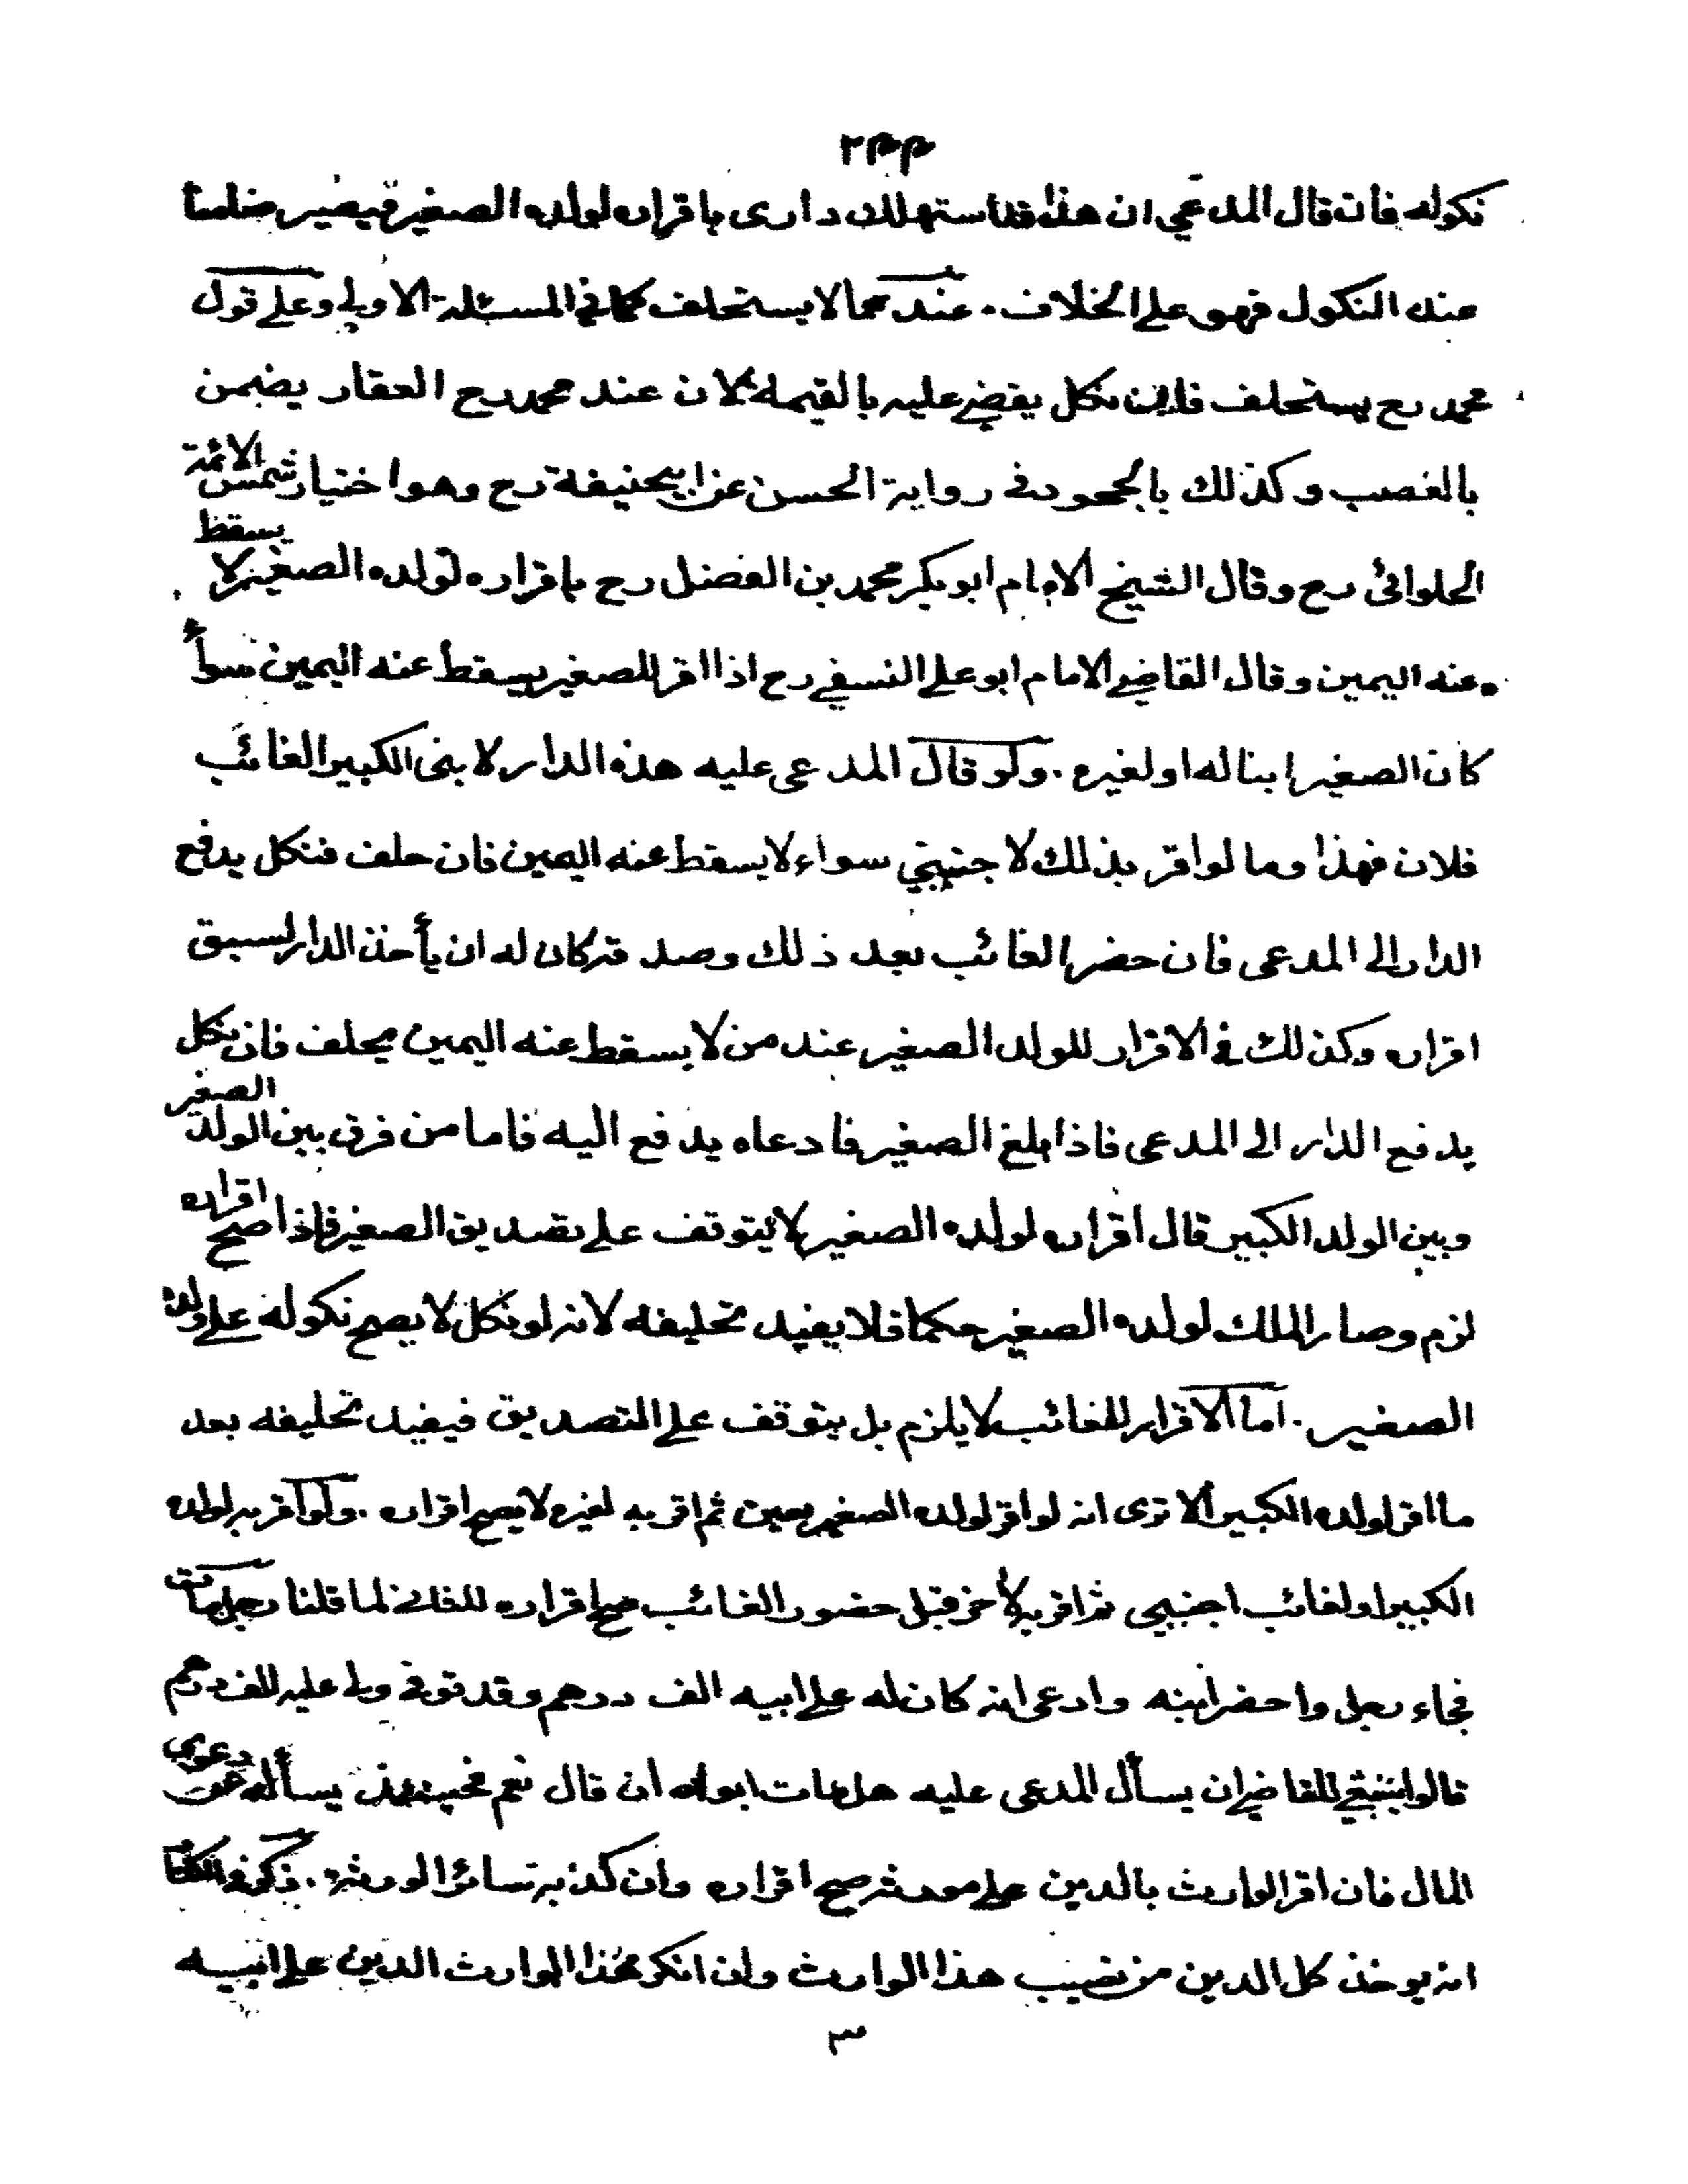 نكوله فان قال المدعي ان هذا قد استهلك داري باقراره لولده الصغير فيصير ضامنا
عند النكول فهو على الخلاف . عندهما لا يستحلف كما في المسئلة الاولى وعلى قول
محمد رح يستحلف فان نكل يقضي عليه بالقيمة لان عند محمد رح العقار يضمن
بالغصب وكذلك بالجحود في رواية الحسن عن ابيحنيفة رح وهو اختيار شمس الائمة
الحلوائى رح وقال الشيخ الامام ابو بكر محمد بن الفضل رح باقراره لولده الصغير لا يسقط
عنه اليمين وقال القاضي الامام ابو علي النسفي رح اذا اقر للصغير يسقط عنه اليمين سواء
كان الصغير ابنا له او لغيره . ولو قال المدعى عليه هذه الدار لابنى الكبير الغائب
فلان فهذا وما لو اقر بذلك لاجنبي سواء لا يسقط عنه اليمين فان حلف فنكل يدفع
الدار الى المدعى فان حضر الغائب بعد ذلك وصدقه كان له ان يأخذ الدار لسبق
اقراره وكذلك في الاقرار للولد الصغير عند من لا يسقط عنه اليمين يحلف فان نكل
يدفع الدار الى المدعى فاذا بلغ الصغير فادعاه يدفع اليه فاما من فرق بين الولد الصغير
وبين الولد الكبير قال اقراره لولده الصغير لا يتوقف على تصديق الصغير فاذا صح اقراره
لزم وصار الملك لولده الصغير حكما فلا يفيد تحليفه لانه لو نكل لا يصح نكوله على ولده
الصغير . اما الاقرار للغائب لا يلزم بل يتوقف على التصديق فيفيد تحليفه بعد
ما اقر لولده الكبير ألا ترى انه لو اقر لولده الصغير بعين ثم اقر به لغيره لا يصح اقراره . ولو اقر به لولده
الكبير او لغائب اجنبي ثم اقر به لآخر قبل حضور الغائب صح اقراره للثاني لما قلنا رجل مات
فجاء رجل واحضر ابنه وادعى انه كان له على ابيه الف درهم وقد توفي ولي عليه الف درهم
قالوا ينبغي للقاضي ان يسأل المدعى عليه هل مات ابوك ان قال نعم فحينئذ يسأله عن دعوى
المال فان اقر الوارث بالدين على مورثه صح اقراره وان كذبه سائر الورثة . ذكر في الكتاب
انه يوخذ كل الدين من نصيب هذا الوارث وان انكر هذا الوارث الدين على ابيه